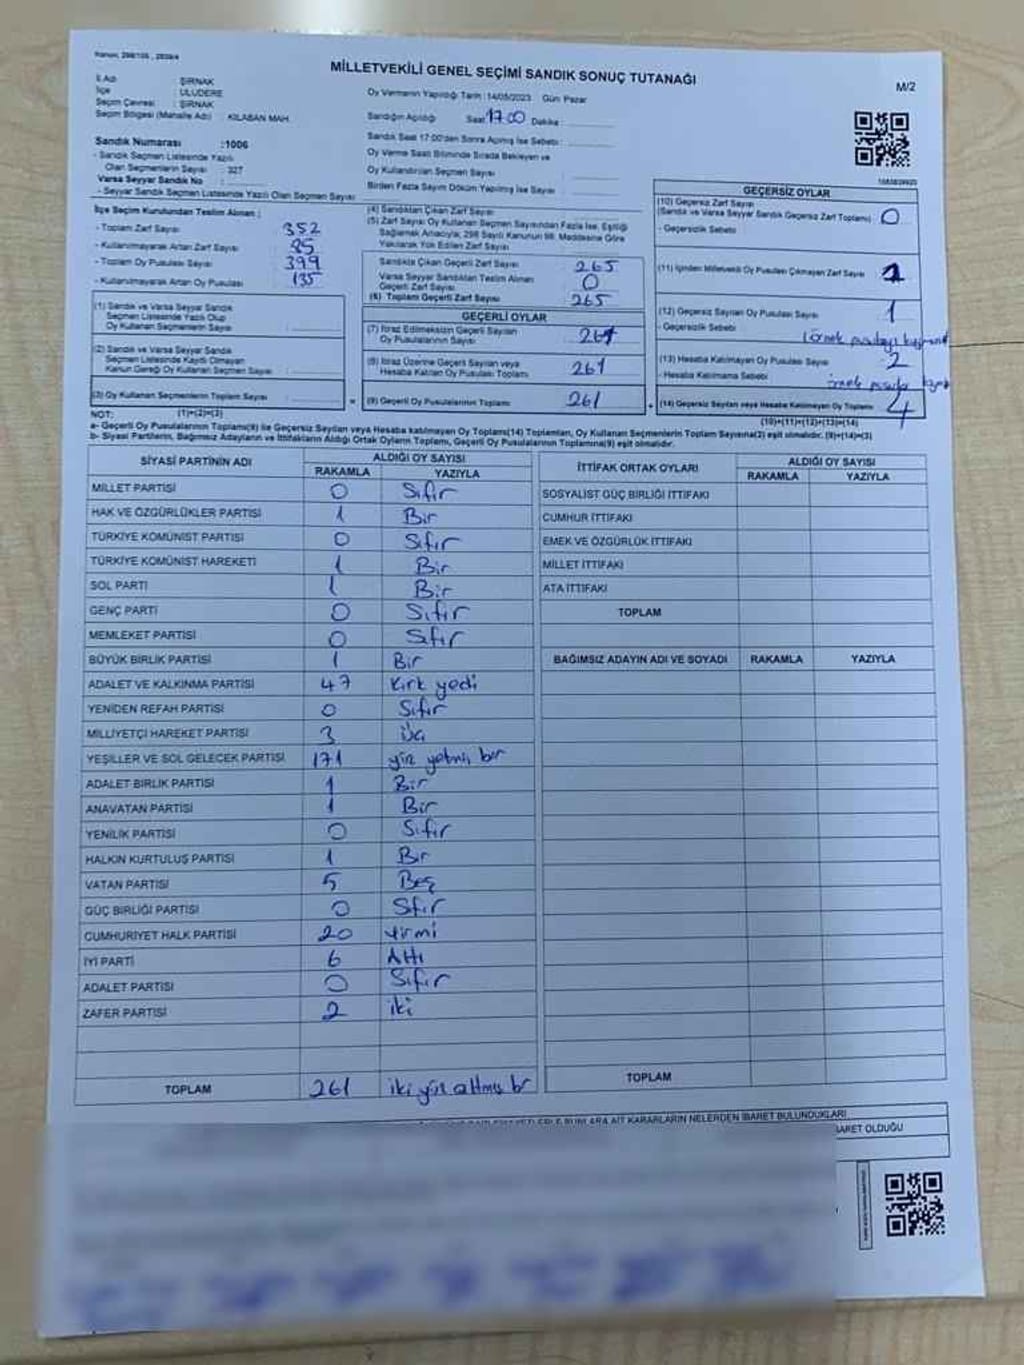 Kanun: 298/105 , 2839/4
MİLLETVEKİLİ GENEL SEÇİMİ SANDIK SONUÇ TUTANAĞI
M/2
İl Adı : ŞIRNAK
İlçe : ULUDERE
Seçim Çevresi : ŞIRNAK
Seçim Bölgesi (Mahalle Adı) KILABAN MAH.
Sandık Numarası :1006
- Sandık Seçmen Listesinde Yazılı
Olan Seçmenlerin Sayısı : 327
Varsa Seyyar Sandık No :
- Seyyar Sandık Seçmen Listesinde Yazılı Olan Seçmen Sayısı
Oy Vermenin Yapıldığı Tarih :14/05/2023 Gün Pazar
Sandığın Açıldığı Saat 17:00 Dakika :
Sandık Saat 17:00'den Sonra Açılmış İse Sebebi :
Oy Verme Saati Bitiminde Sırada Bekleyen ve
Oy Kullandırılan Seçmen Sayısı
Birden Fazla Sayım Döküm Yapılmış İse Sayısı
İlçe Seçim Kurulundan Teslim Alınan :
- Toplam Zarf Sayısı : 352
- Kullanılmayarak Artan Zarf Sayısı : 85
- Toplam Oy Pusulası Sayısı : 399
- Kullanılmayarak Artan Oy Pusulası : 135
(1) Sandık ve Varsa Seyyar Sandık
Seçmen Listesinde Yazılı Olup
Oy Kullanan Seçmenlerin Sayısı :
(2) Sandık ve Varsa Seyyar Sandık
Seçmen Listesinde Kayıtlı Olmayan
Kanun Gereği Oy Kullanan Seçmen Sayısı :
(3) Oy Kullanan Seçmenlerin Toplam Sayısı :
(1)+(2)=(3)
(4) Sandıktan Çıkan Zarf Sayısı
(5) Zarf Sayısı Oy Kullanan Seçmen Sayısından Fazla İse, Eşitliği
Sağlamak Amacıyla; 298 Sayılı Kanunun 98. Maddesine Göre
Yakılarak Yok Edilen Zarf Sayısı
Sandıkta Çıkan Geçerli Zarf Sayısı 265
Varsa Seyyar Sandıktan Teslim Alınan
Geçerli Zarf Sayısı 0
(6) Toplam Geçerli Zarf Sayısı 265
GEÇERLİ OYLAR
(7) İtiraz Edilmeksizin Geçerli Sayılan
Oy Pusulalarının Sayısı 261
(8) İtiraz Üzerine Geçerli Sayılan veya
Hesaba Katılan Oy Pusulası Toplamı 261
= (9) Geçerli Oy Pusulalarının Toplamı 261
GEÇERSİZ OYLAR
(10) Geçersiz Zarf Sayısı
(Sandık ve Varsa Seyyar Sandık Geçersiz Zarf Toplamı) 0
- Geçersizlik Sebebi
(11) İçinden Milletvekili Oy Pusulası Çıkmayan Zarf Sayısı 1
(12) Geçersiz Sayılan Oy Pusulası Sayısı 1
- Geçersizlik Sebebi
(13) Hesaba Katılmayan Oy Pusulası Sayısı 2
- Hesaba Katılmama Sebebi
+ (14) Geçersiz Sayılan veya Hesaba Katılmayan Oy Toplamı 4
(10)+(11)+(12)+(13)=(14)
NOT:
a- Geçerli Oy Pusulalarının Toplamı(9) ile Geçersiz Sayılan veya Hesaba katılmayan Oy Toplamı(14) Toplamları, Oy Kullanan Seçmenlerin Toplam Sayısına(3) eşit olmalıdır. (9)+(14)=(3)
b- Siyasi Partilerin, Bağımsız Adayların ve İttifakların Aldığı Ortak Oyların Toplamı, Geçerli Oy Pusulalarının Toplamına(9) eşit olmalıdır.
SİYASİ PARTİNİN ADI ALDIĞI OY SAYISI
RAKAMLA YAZIYLA
MİLLET PARTİSİ 0 Sıfır
HAK VE ÖZGÜRLÜKLER PARTİSİ 1 Bir
TÜRKİYE KOMÜNİST PARTİSİ 0 Sıfır
TÜRKİYE KOMÜNİST HAREKETİ 1 Bir
SOL PARTİ 1 Bir
GENÇ PARTİ 0 Sıfır
MEMLEKET PARTİSİ 0 Sıfır
BÜYÜK BİRLİK PARTİSİ 1 Bir
ADALET VE KALKINMA PARTİSİ 47 Kırk yedi
YENİDEN REFAH PARTİSİ 0 Sıfır
MİLLİYETÇİ HAREKET PARTİSİ 3 üç
YEŞİLLER VE SOL GELECEK PARTİSİ 171 yüz yetmiş bir
ADALET BİRLİK PARTİSİ 1 Bir
ANAVATAN PARTİSİ 1 Bir
YENİLİK PARTİSİ 0 Sıfır
HALKIN KURTULUŞ PARTİSİ 1 Bir
VATAN PARTİSİ 5 Beş
GÜÇ BİRLİĞİ PARTİSİ 0 Sıfır
CUMHURİYET HALK PARTİSİ 20 yirmi
İYİ PARTİ 6 Altı
ADALET PARTİSİ 0 Sıfır
ZAFER PARTİSİ 2 iki
TOPLAM 261 iki yüz altmış bir
İTTİFAK ORTAK OYLARI ALDIĞI OY SAYISI
RAKAMLA YAZIYLA
SOSYALİST GÜÇ BİRLİĞİ İTTİFAKI
CUMHUR İTTİFAKI
EMEK VE ÖZGÜRLÜK İTTİFAKI
MİLLET İTTİFAKI
ATA İTTİFAKI
TOPLAM
BAĞIMSIZ ADAYIN ADI VE SOYADI RAKAMLA YAZIYLA
TOPLAM
AİT KARARLARIN NELERDEN İBARET BULUNDUKLARI
İBARET OLDUĞU